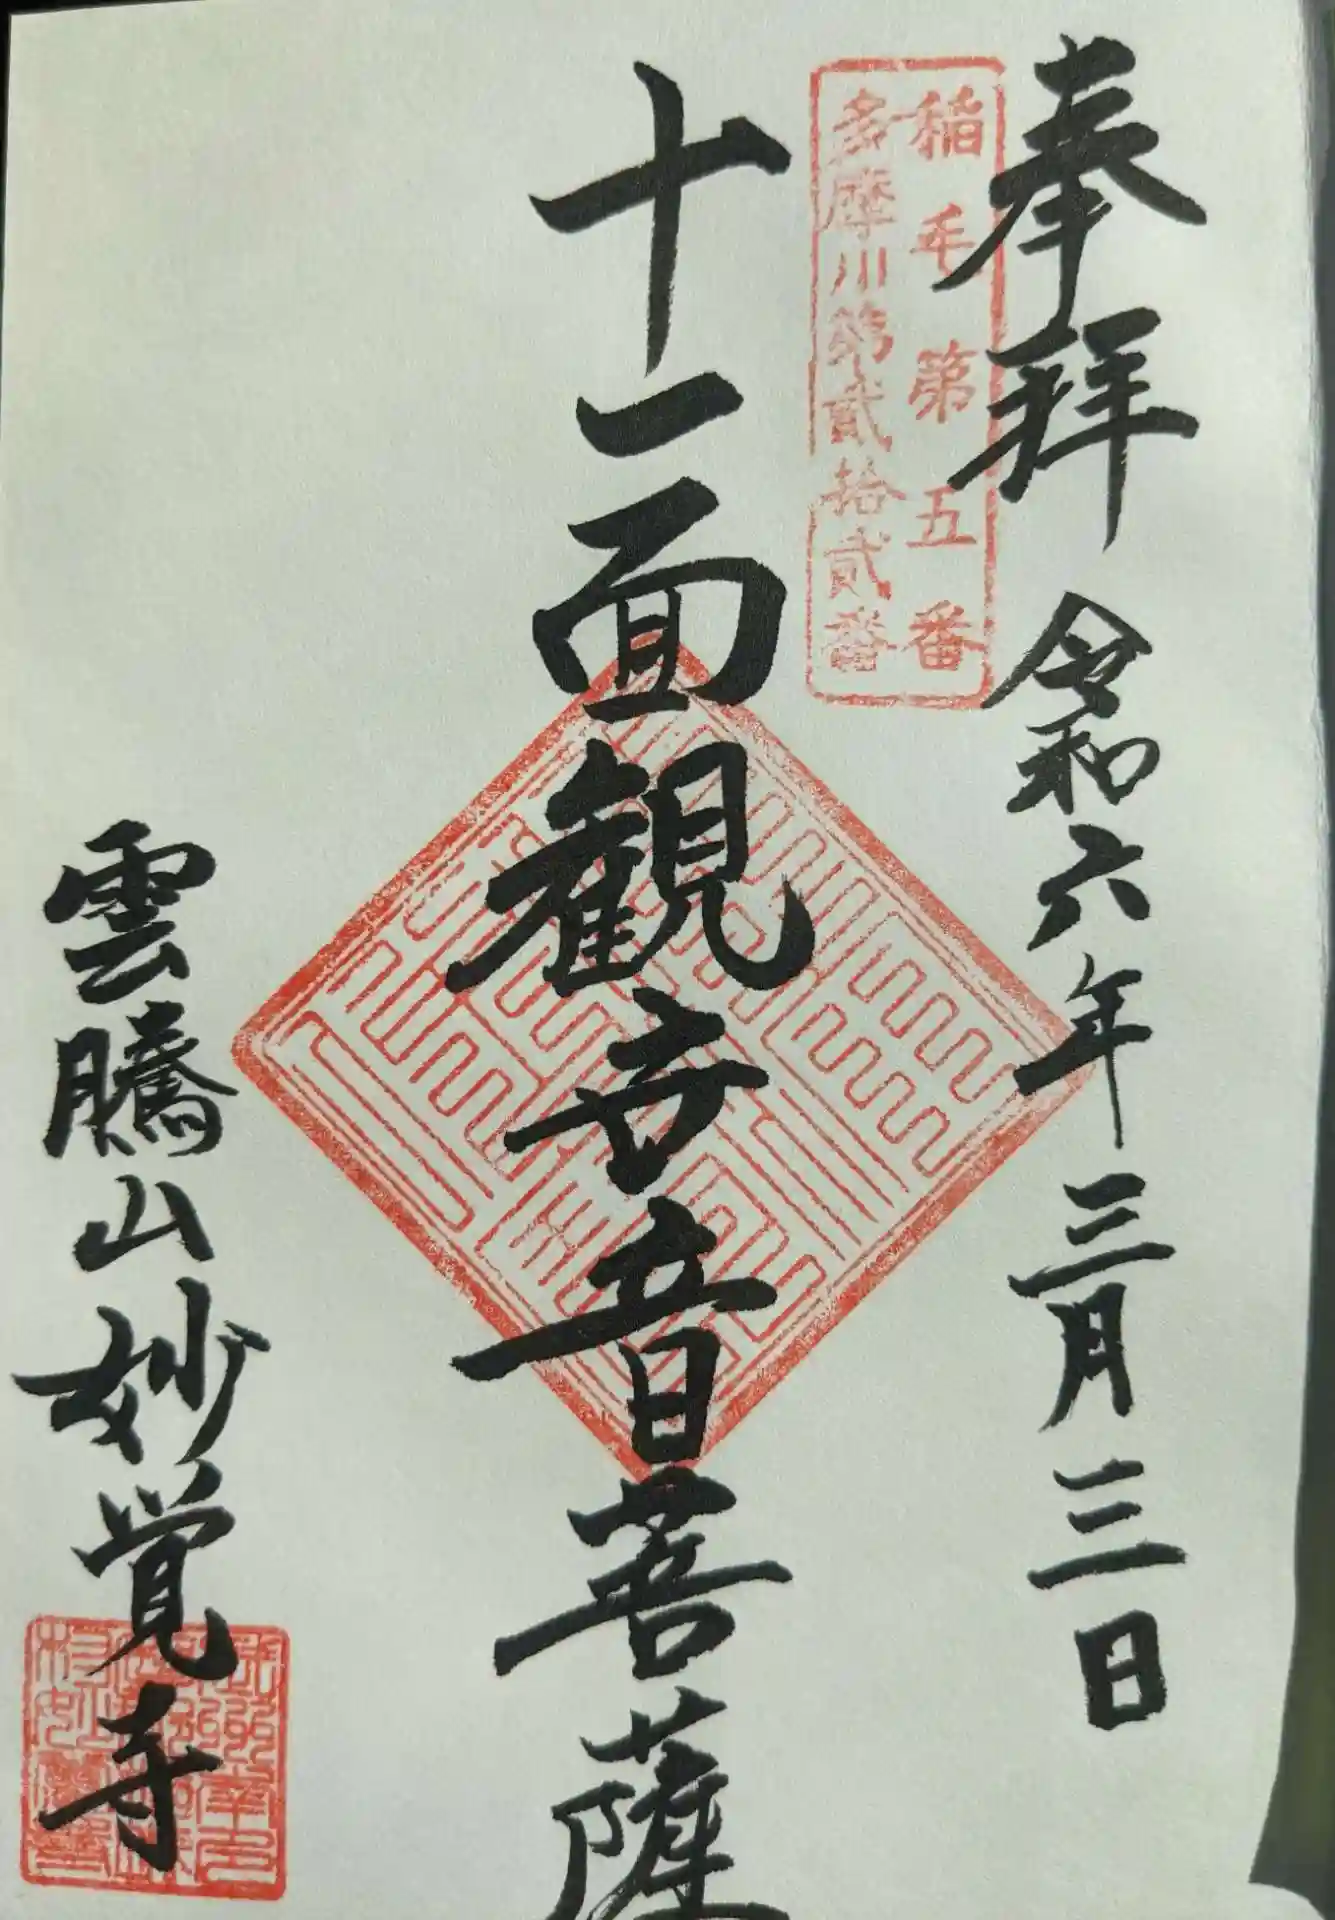 奉拝 令和六年三月三日
稲毛第五番
多摩川第貮拾貮番
十一面観世音菩薩
雲騰山妙覚寺